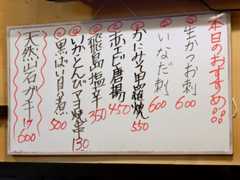 本日のおすすめ
生かつお刺 600
いなだ刺 600
かにみそ甲羅焼 550
赤エビ唐揚 450
飛島塩辛 350
いかとんびマヨ焼 130
黒ばい旨煮 500
天然岩ガキ 600